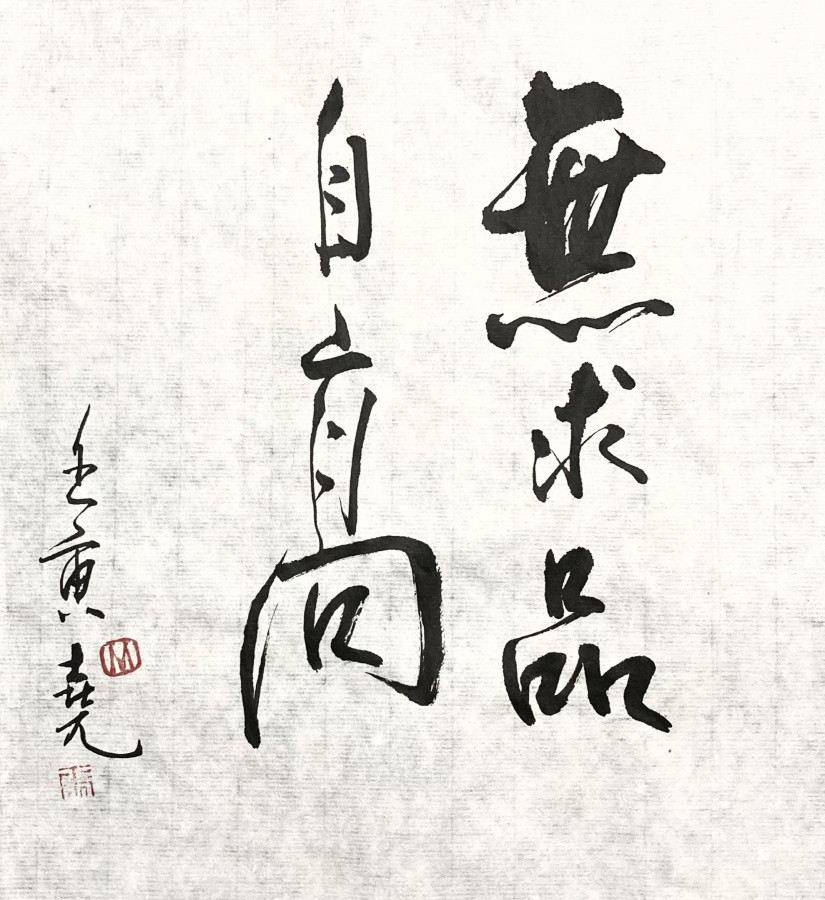 無求品
自高
壬寅堯